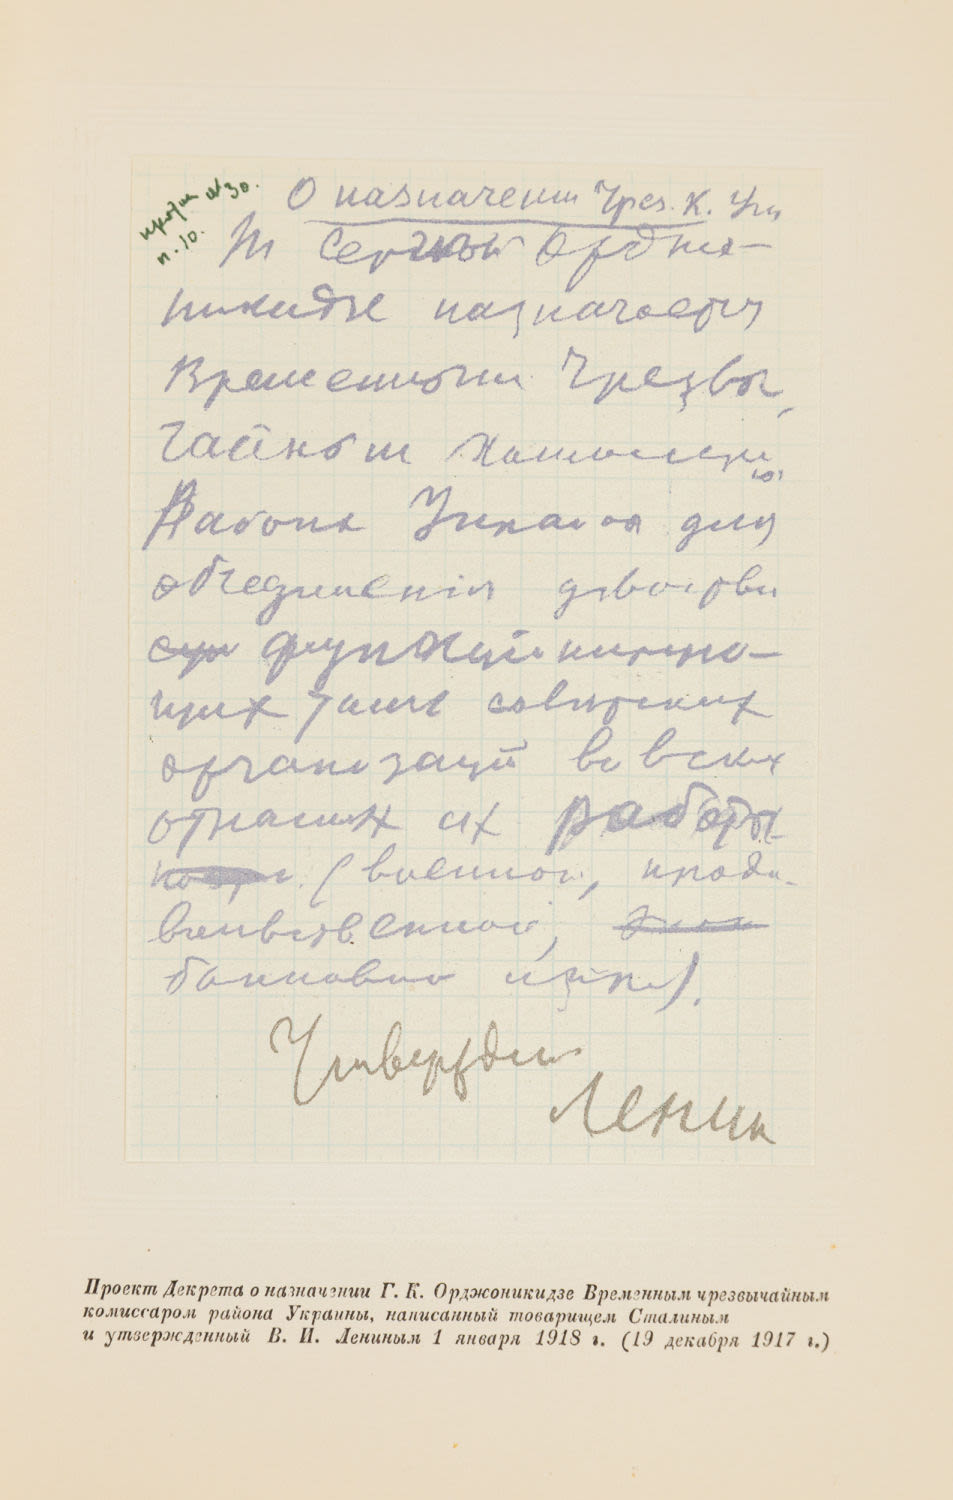 п. 10.
О назначении Чрез. К. Укр
Т Сергей Орджо-
никидзе назначается
Временным Чрезвы
чайным комиссаро
Района Украйны для
объединения действи
функций
щих там советских
организаций во всех
отраслях их работы
(военной, продо-
вольственной,
банковой и пр.).
Утвердил
Ленин
Проект Декрета о назначении Г. К. Орджоникидзе Временным чрезвычайным
комиссаром района Украины, написанный товарищем Сталиным
и утвержденный В. И. Лениным 1 января 1918 г. (19 декабря 1917 г.)